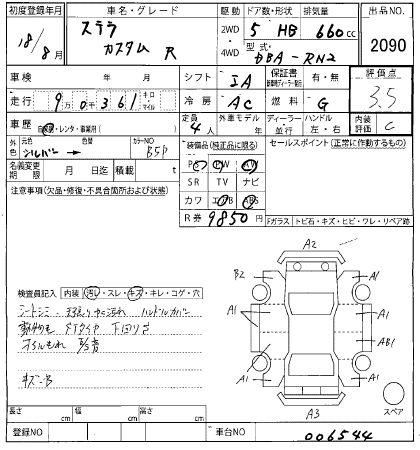 初度登録年月 車名・グレード 駆動 ドア数/形状 排気量 出品NO.
18/8月 ステラ カスタム R 2WD・4WD 5 HB 660cc 2090
型式 DBA-RN2
車検 年 月 シフト IA 保証書 有・無 評価点 3.5
走行 9万0千361 キロ マイル 冷房 AC 燃料 G
車歴 自家用・レンタ・事業用( ) 定員 4人 外車モデル 年 ディーラー 並行 ハンドル 左・右 内装評価 C
外色 元色 シルバー 色替 カラーNO B5P
装備品(純正品に限る) セールスポイント(正常に作動するもの)
名義変更期限 月 日迄 積載 t
PS PW AW
SR TV ナビ
カワ エアB ABS
注意事項(欠品・修復・不具合箇所および状態)
R券 9850円
Fガラス トビ石・キズ・ヒビ・ワレ・リペア跡
A2
B2 A1
検査員記入 内装 汚れ・スレ・キズ・キレ・コゲ・穴
A1 A1
ハンドルカバー
下回りサ
AB1
A1 A1
キズ
A3
スペア
長さ cm 幅 cm 高さ cm
登録NO 車台NO 006544